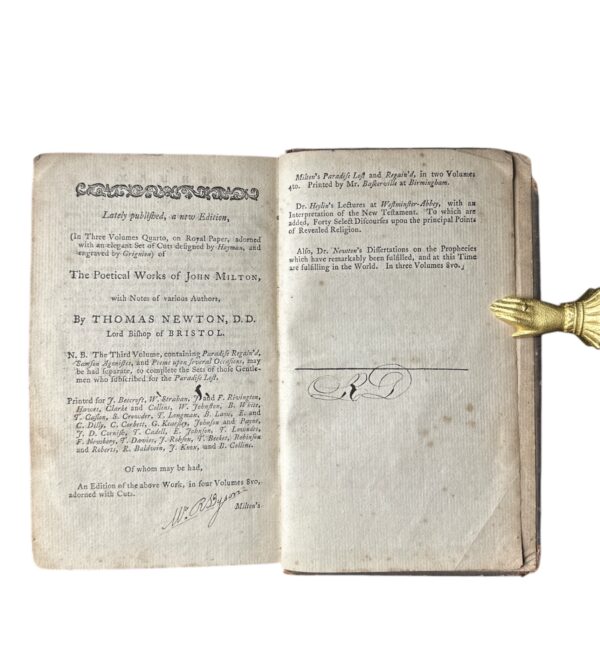 Lately published, a new Edition,
(In Three Volumes Quarto, on Royal Paper, adorned
with an elegant Set of Cuts designed by Hayman, and
engraved by Grignion) of
The Poetical Works of JOHN MILTON,
with Notes of various Authors,
By THOMAS NEWTON, D.D.
Lord Bishop of BRISTOL.
N. B. The Third Volume, containing Paradise Regain'd,
Samson Agonistes, and Poems upon several Occasions, may
be had separate, to complete the Sets of those Gentle-
men who subscribed for the Paradise Lost.
Printed for J. Beecroft, W. Strahan, J. and F. Rivington,
Hawes, Clarke and Collins, W. Johnston, B. White,
T. Caslon, S. Crowder, T. Longman, B. Law, E. and
C. Dilly, C. Corbett, G. Kearsley, Johnson and Payne,
J. D. Cornish, T. Cadell, E. Johnson, T. Lowndes,
F. Newbery, T. Davies, J. Robson, T. Becket, Robinson
and Roberts, R. Baldwin, J. Knox, and B. Collins.
Of whom may be had,
An Edition of the above Work, in four Volumes 8vo,
adorned with Cuts.
Milton's
Milton's Paradise Lost and Regain'd, in two Volumes
4to. Printed by Mr. Baskerville at Birmingham.
Dr. Heylin's Lectures at Westminster-Abbey, with an
Interpretation of the New Testament. To which are
added, Forty Select Discourses upon the principal Points
of Revealed Religion.
Also, Dr. Newton's Dissertations on the Prophecies
which have remarkably been fulfilled, and at this Time
are fulfilling in the World. In three Volumes 8vo.